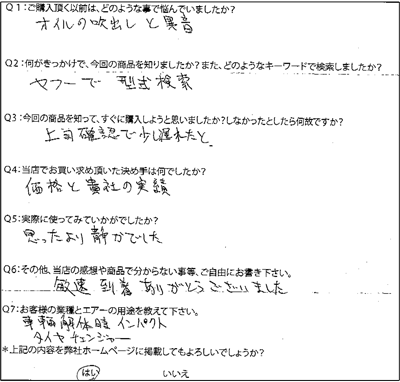 Q1:ご購入頂く以前は、どのような事で悩んでいましたか?
オイルの吹出しと異音
Q2:何がきっかけで、今回の商品を知りましたか?また、どのようなキーワードで検索しましたか?
ヤフーで 型式検索
Q3:今回の商品を知って、すぐに購入しようと思いましたか?しなかったとしたら何故ですか?
上司確認で少し遅れたと
Q4:当店でお買い求め頂いた決め手は何でしたか?
価格と貴社の実績
Q5:実際に使ってみていかがでしたか?
思ったより静かでした
Q6:その他、当店の感想や商品で分からない事等、ご自由にお書き下さい。
敏速 到着 ありがとうございました
Q7:お客様の業種とエアーの用途を教えて下さい。
車輌解体時 インパクト
タイヤチェンジャー
*上記の内容を弊社ホームページに掲載してもよろしいでしょうか?
はい いいえ